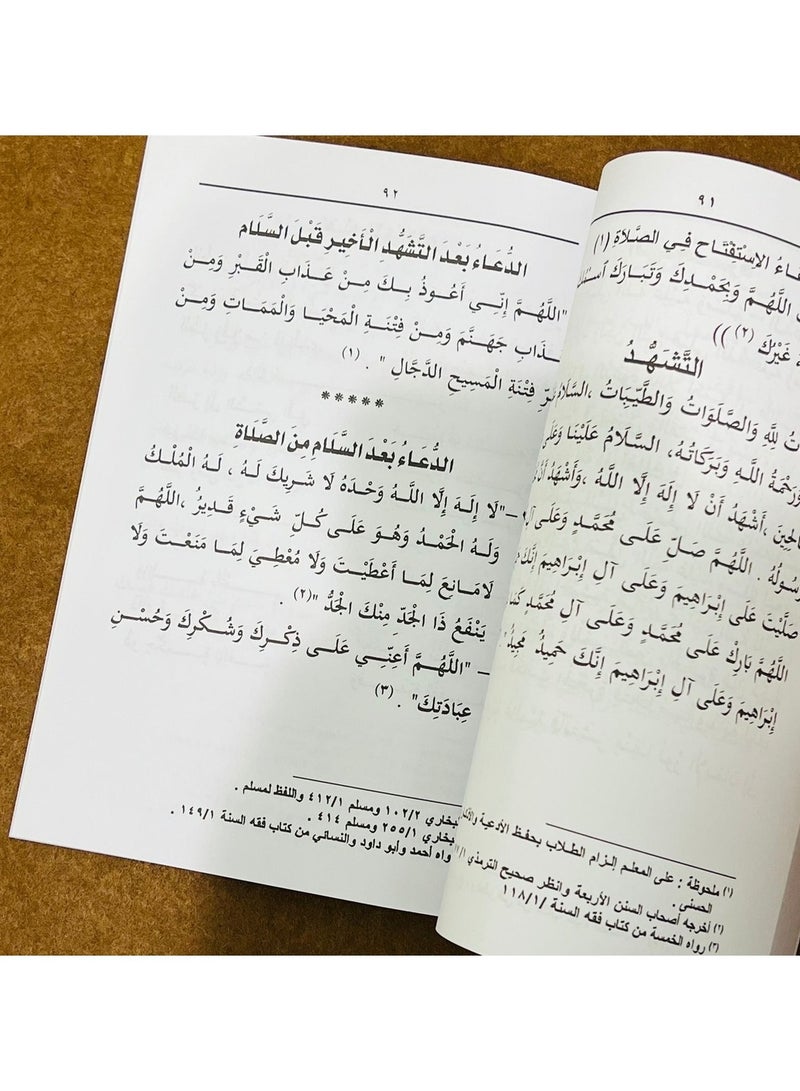 ٩١
الاِسْتِفْتَاح فِي الصَّلاَةِ (١)
اللَّهُمَّ وَبِحَمْدِكَ وَتَبَارَكَ
غَيْرُكَ (٢) ))
التَّشَهُّدُ
لِلَّهِ وَالصَّلَوَاتُ وَالطَّيِّبَاتُ ،السَّلاَمُ
وَرَحْمَةُ اللَّهِ وَبَرَكَاتُهُ، السَّلاَمُ عَلَيْنَا وَعَلَى
،أَشْهَدُ أَنْ لَا إِلَهَ إِلَّا اللَّهُ ،وَأَشْهَدُ أَنَّ
. اللَّهُمَّ صَلِّ عَلَى مُحَمَّدٍ وَعَلَى آلِ
صَلَّيْتَ عَلَى إِبْرَاهِيمَ وَعَلَى آلِ إِبْرَاهِيمَ إِنَّكَ
اللَّهُمَّ بَارِكْ عَلَى مُحَمَّدٍ وَعَلَى آلِ مُحَمَّدٍ
إِبْرَاهِيمَ وَعَلَى آلِ إِبْرَاهِيمَ إِنَّكَ حَمِيدٌ مَجِيدٌ
(١) ملحوظة : على المعلم إلزام الطلاب بحفظ الأدعية
الحسنى .
(٢) أخرجه أصحاب السنن الأربعة وانظر صحيح الترمذي
(٣) رواه الخمسة من كتاب فقه السنة /١١٨/١
٩٢
الدُّعَاءُ بَعْدَ التَّشَهُّدِ الْأَخِيرِ قَبْلَ السَّلَامِ
"اللَّهُمَّ إِنِّي أَعُوذُ بِكَ مِنْ عَذَابِ الْقَبْرِ وَمِنْ
عَذَابِ جَهَنَّمَ وَمِنْ فِتْنَةِ الْمَحْيَا وَالْمَمَاتِ وَمِنْ
فِتْنَةِ الْمَسِيحِ الدَّجَّالِ " . (١)
*****
الدُّعَاءُ بَعْدَ السَّلَامِ مِنَ الصَّلَاةِ
–"لَا إِلَهَ إِلَّا اللَّهُ وَحْدَهُ لَا شَرِيكَ لَهُ ، لَهُ الْمُلْكُ
وَلَهُ الْحَمْدُ وَهُوَ عَلَى كُلِّ شَيْءٍ قَدِيرٌ ،اللَّهُمَّ
لَامَانِعَ لِمَا أَعْطَيْتَ وَلَا مُعْطِيَ لِمَا مَنَعْتَ وَلَا
يَنْفَعُ ذَا الْجَدِّ مِنْكَ الْجَدُّ "(٢) .
– "اللَّهُمَّ أَعِنِّي عَلَى ذِكْرِكَ وَشُكْرِكَ وَحُسْنِ
عِبَادَتِكَ" . (٣)
البخاري ١٠٢/٢ ومسلم ٤١٢/١ واللفظ لمسلم .
البخاري ٢٥٥/١ ومسلم ٤١٤ .
رواه أحمد وأبو داود والنسائي من كتاب فقه السنة ١٤٩/١ .